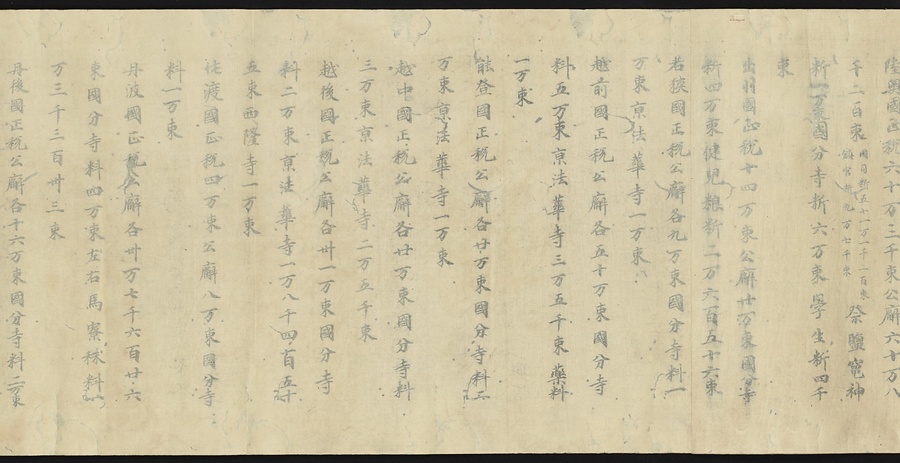 陸奥國正税六十万三千束公廨六十万八
千二百束國司料五十一万一千二百束鎮官料九万七千束祭鹽竈神
料一万束國分寺料六万束學生料四千
束
出羽國正税十四万束公廨廿万束國分寺
料四万束健児粮料二万六百五十六束
若狹國正税公廨各九万束國分寺料一
万束京法華寺一万束
越前國正税公廨各五十万束國分寺
料五万束京法華寺三万五千束藥料
一万束
能登國正税公廨各廿万束國分寺料二
万束京法華寺一万束
越中國正税公廨各廿万束國分寺料
三万束京法華寺二万五千束
越後國正税公廨各卅一万束國分寺
料二万束京法華寺一万八千四百五十
五束西隆寺一万束
佐渡國正税四万束公廨八万束國分寺
料一万束
丹波國正税公廨各卅万七千六百廿六
束國分寺料四万束左右馬寮秣料
万三千三百卅三束
丹後國正税公廨各十六万束國分寺料二万束